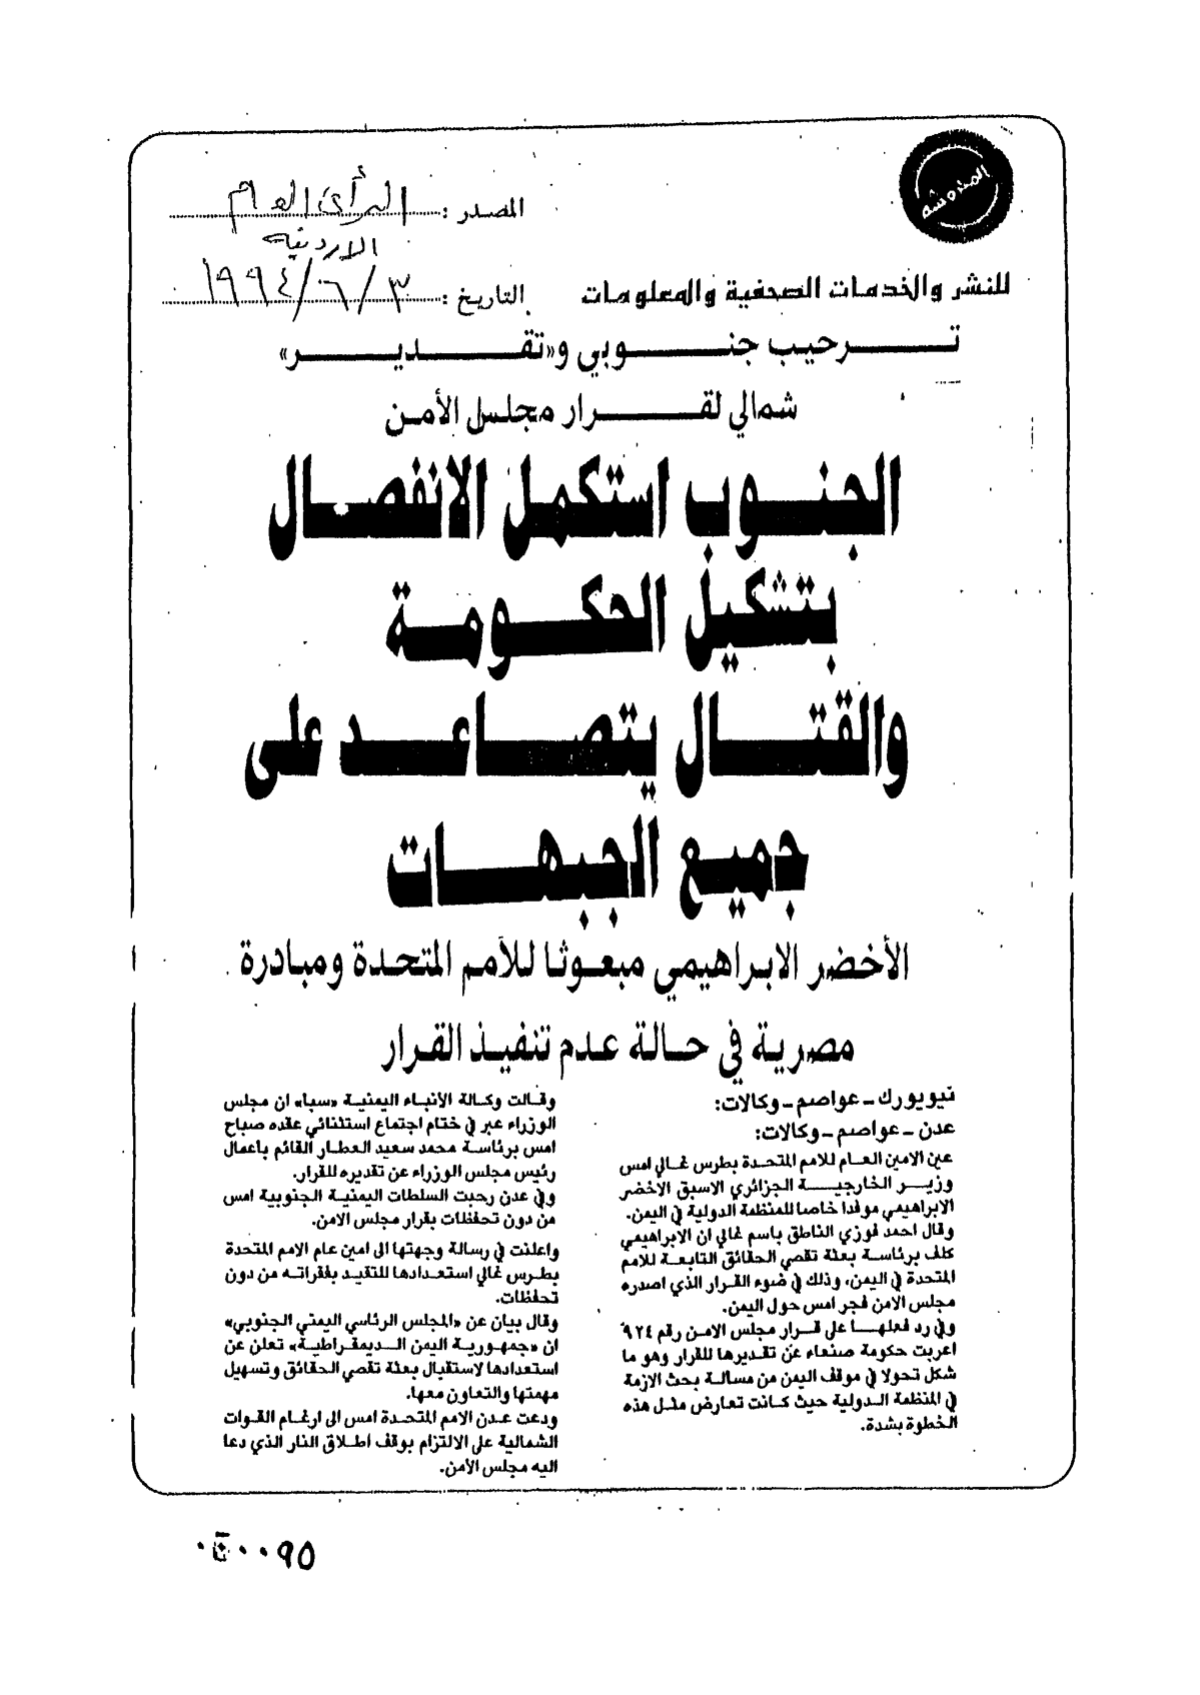 المحروسة
المصدر : الرأى العام
الاردنية
للنشر والخدمات الصحفية والمعلومات
التاريخ : ٣/٦/١٩٩٤
ترحيب جنوبي و«تقدير»
شمالي لقرار مجلس الأمن
الجنوب استكمل الانفصال
بتشكيل الحكومة
والقتال يتصاعد على
جميع الجبهات
الأخضر الابراهيمي مبعوثا للأمم المتحدة ومبادرة
مصرية في حالة عدم تنفيذ القرار
نيويورك ـ عواصم ـ وكالات:
عدن ـ عواصم ـ وكالات:
عين الامين العام للامم المتحدة بطرس غالي امس
وزير الخارجية الجزائري الاسبق الاخضر
الابراهيمي موفدا خاصا للمنظمة الدولية في اليمن.
وقال احمد فوزي الناطق باسم غالي ان الابراهيمي
كلف برئاسة بعثة تقصي الحقائق التابعة للامم
المتحدة في اليمن، وذلك في ضوء القرار الذي اصدره
مجلس الامن فجر امس حول اليمن.
وفي رد فعلها على قرار مجلس الامن رقم ٩٢٤
اعربت حكومة صنعاء عن تقديرها للقرار وهو ما
شكل تحولا في موقف اليمن من مسالة بحث الازمة
في المنظمة الدولية حيث كانت تعارض مثل هذه
الخطوة بشدة.
وقالت وكالة الانباء اليمنية «سبا» ان مجلس
الوزراء عبر في ختام اجتماع استثنائي عقده صباح
امس برئاسة محمد سعيد العطار القائم باعمال
رئيس مجلس الوزراء عن تقديره للقرار.
وفي عدن رحبت السلطات اليمنية الجنوبية امس
من دون تحفظات بقرار مجلس الامن.
واعلنت في رسالة وجهتها الى امين عام الامم المتحدة
بطرس غالي استعدادها للتقيد بفقراته من دون
تحفظات.
وقال بيان عن «المجلس الرئاسي اليمني الجنوبي»
ان «جمهورية اليمن الديمقراطية» تعلن عن
استعدادها لاستقبال بعثة تقصي الحقائق وتسهيل
مهمتها والتعاون معها.
ودعت عدن الامم المتحدة امس الى ارغام القوات
الشمالية على الالتزام بوقف اطلاق النار الذي دعا
اليه مجلس الأمن.